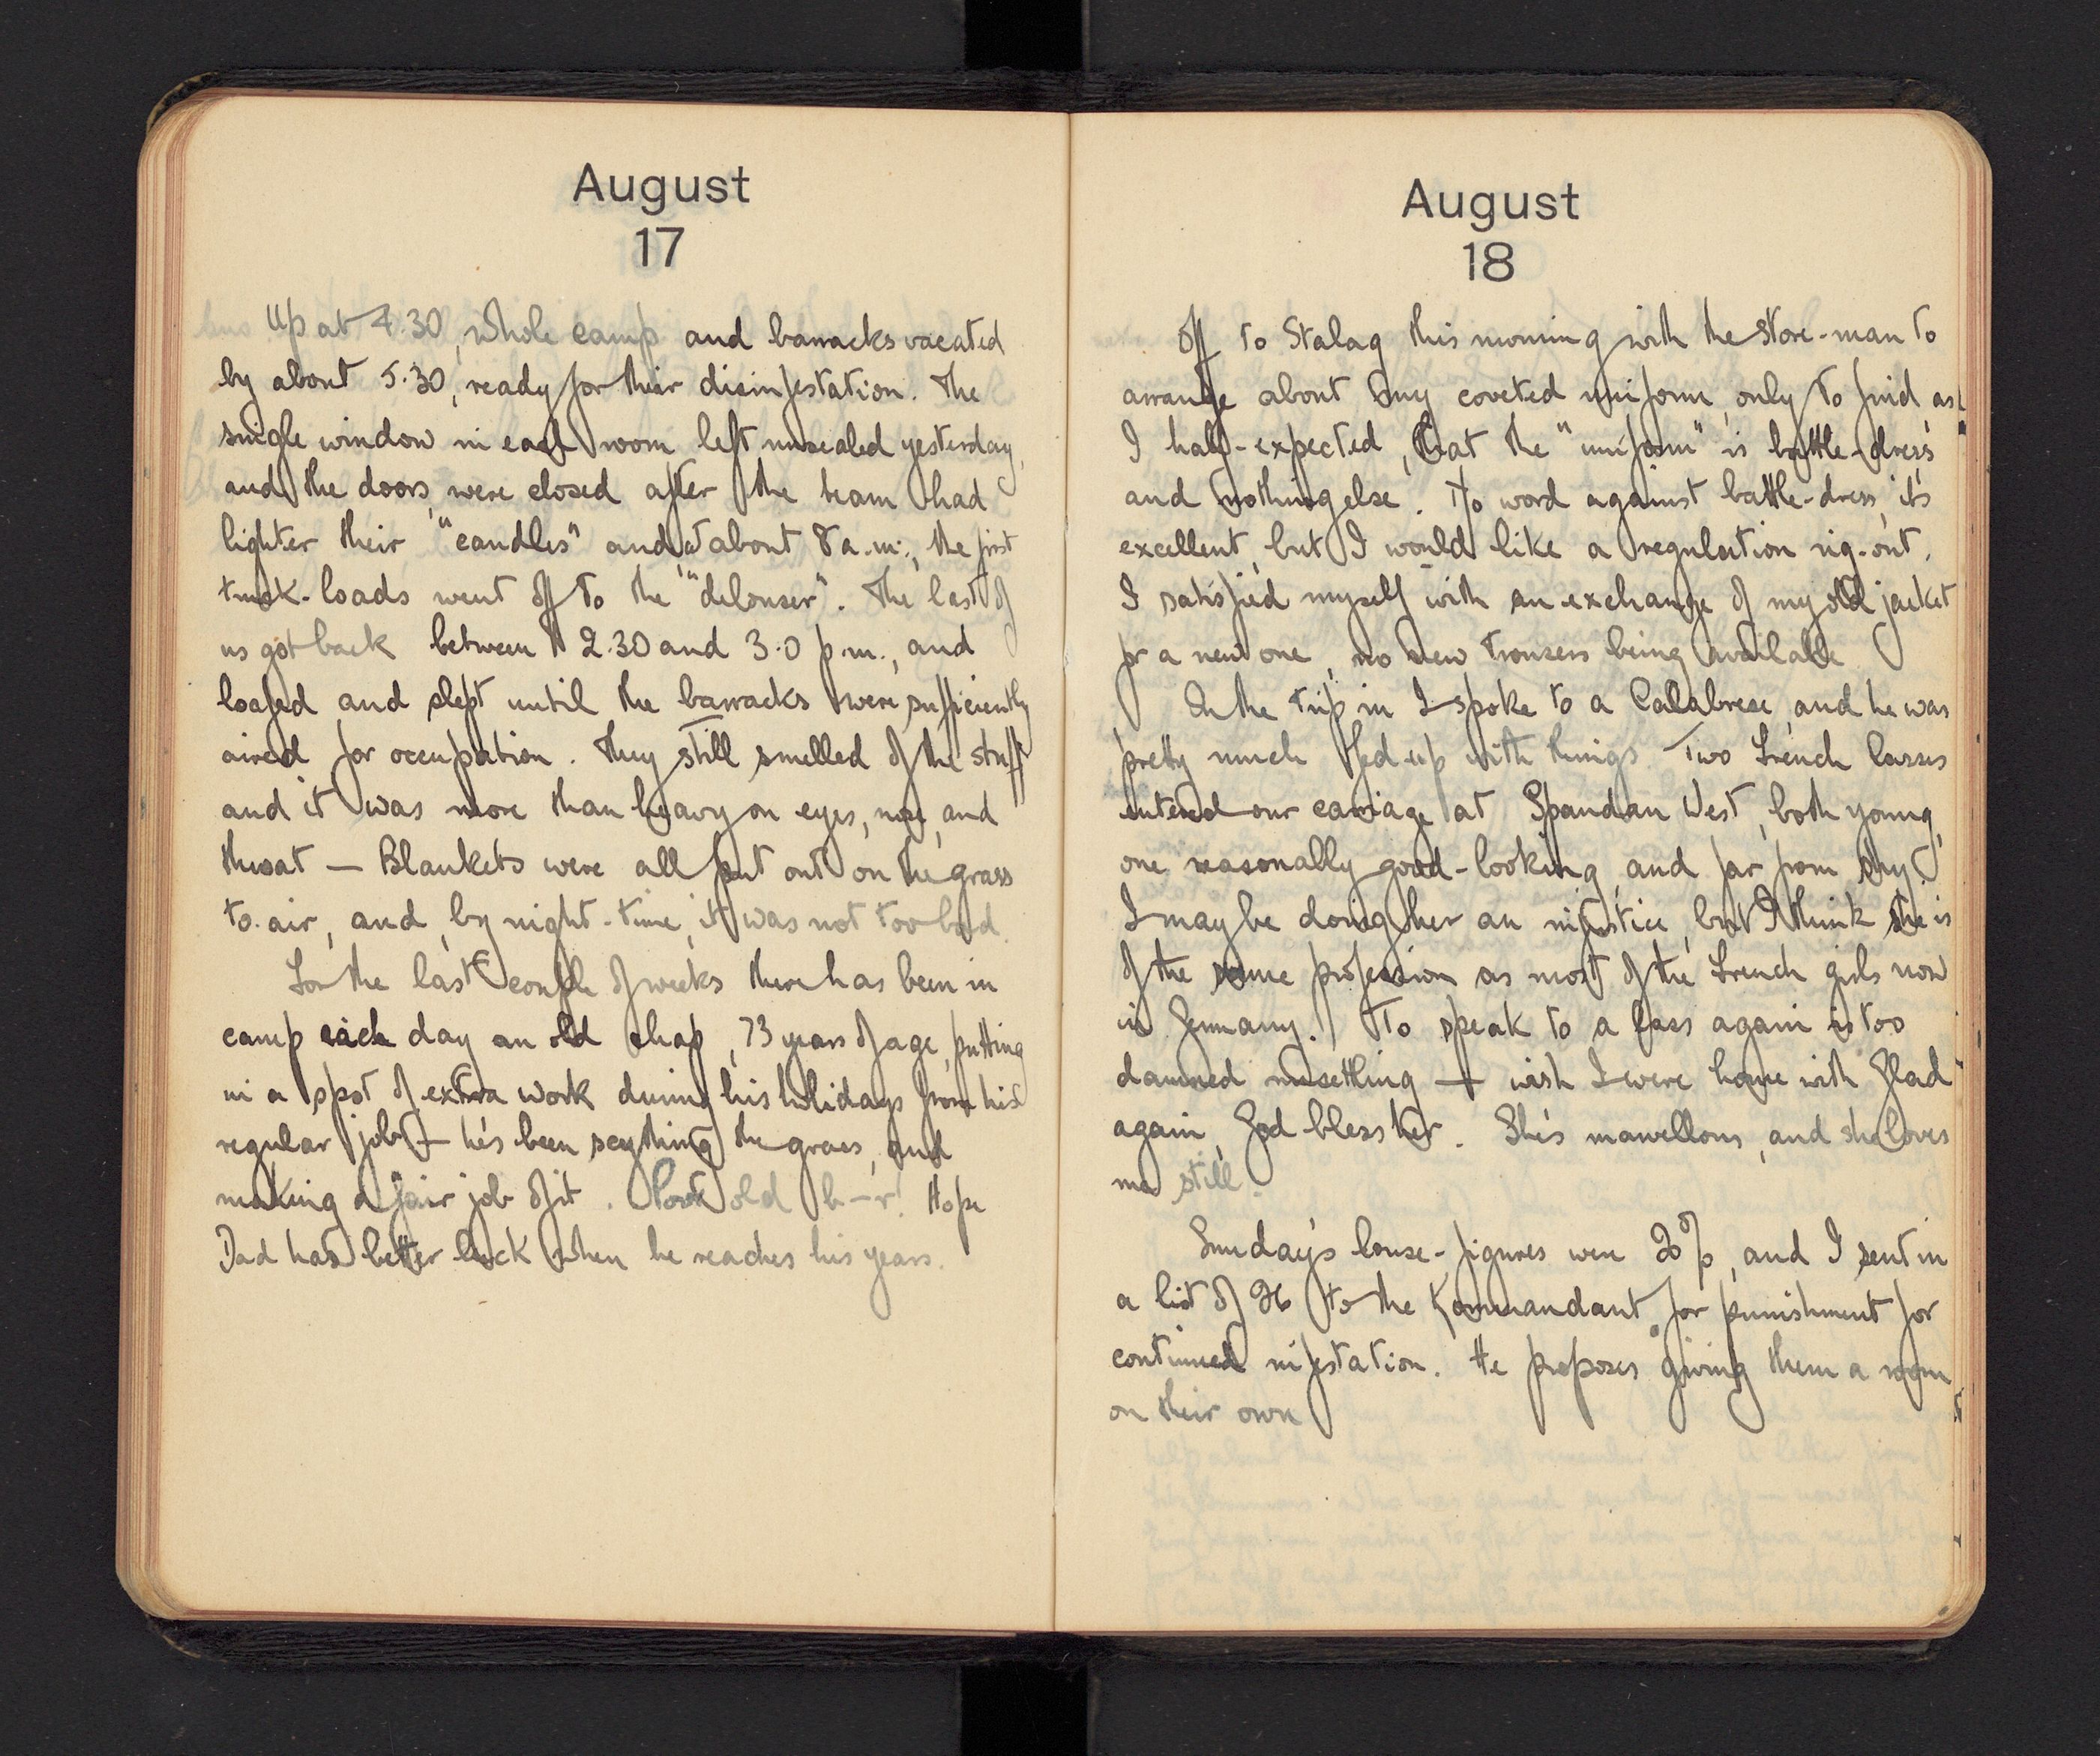 August
17
Up at 4.30, whole camp and barracks vacated
by about 5.30, ready for their disinfestation. The
single window in each room left unsealed yesterday,
and the doors, were closed after the team had
lighter their "candles" and, at about 8 a.m., the first
truck-loads went off to the "delouser". The last of
us got back between 2.30 and 3.0 p.m., and
loafed and slept until the barracks were sufficiently
aired for occupation. They still smelled of the stuff
and it was more than heavy on eyes, nose, and
throat — Blankets were all put out on the grass
to air, and, by night-time, it was not too bad.
For the last couple of weeks there has been in
camp each day an old chap, 73 years of age, putting
in a spot of extra work during his holidays from his
regular job — he's been scything the grass, and
making a fair job of it. Poor old b—r! Hope
Dad has better luck when he reaches his years.
August
18
Off to Stalag this morning with the store-man to
arrange about my coveted uniform, only to find as
I half-expected, that the "uniform" is battle-dress
and nothing else. No word against battle-dress, it's
excellent, but I would like a regulation rig-out.
I satisfied myself with an exchange of my old jacket
for a new one, no new trousers being available
On the trip in I spoke to a Calabrese, and he was
pretty much fed-up with things. Two French lasses
entered our carriage at Spandau West, both young,
one reasonally good-looking, and far from shy.
I may be doing her an injustice, but I think she is
of the same profession as most of the French girls now
in Germany. To speak to a lass again is too
damned unsettling — wish I were home with Glad
again, God bless her. She's marvellous, and she loves
me still.
Sunday's louse-figures were 20%, and I sent in
a list of 26 to the Kommandant for punishment for
continued infestation. He proposes giving them a room
on their own